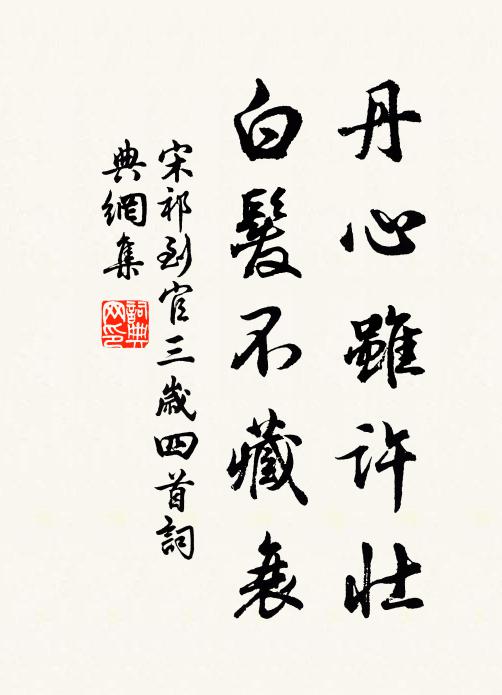 丹心雖許壯
白髮不藏衰
宋祁到官三歲四首詞
典網集
詞典
网印